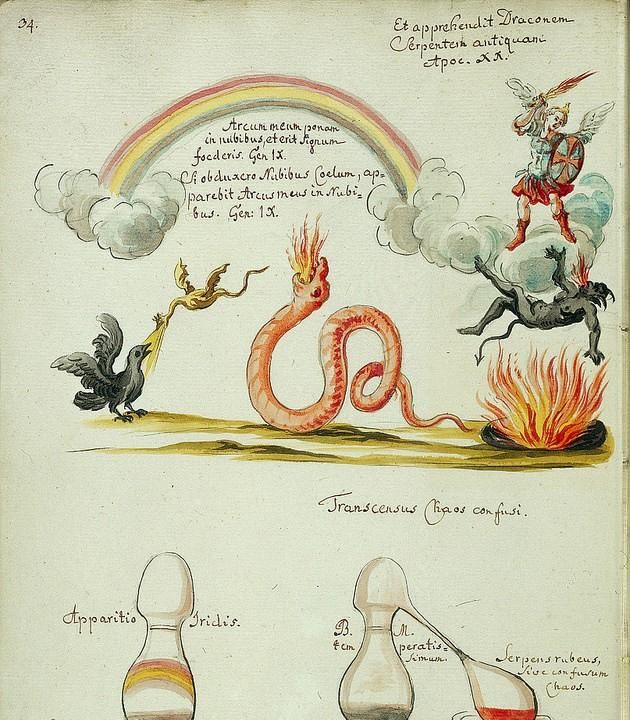 34.
Et apprehendit Draconem
Serpentem antiquam
Apoc. XX.
Arcum meum ponam
in nubibus, et erit signum
foederis. Gen IX.
Si obduxero Nubibus Coelum, ap=
parebit Arcus meus in Nubi=
bus. Gen: IX.
Transcensus Chaos confusi.
Apparitio Iridis.
B. M.
tem peratis=
simum.
Serpens rubeus,
sive confusum
Chaos.